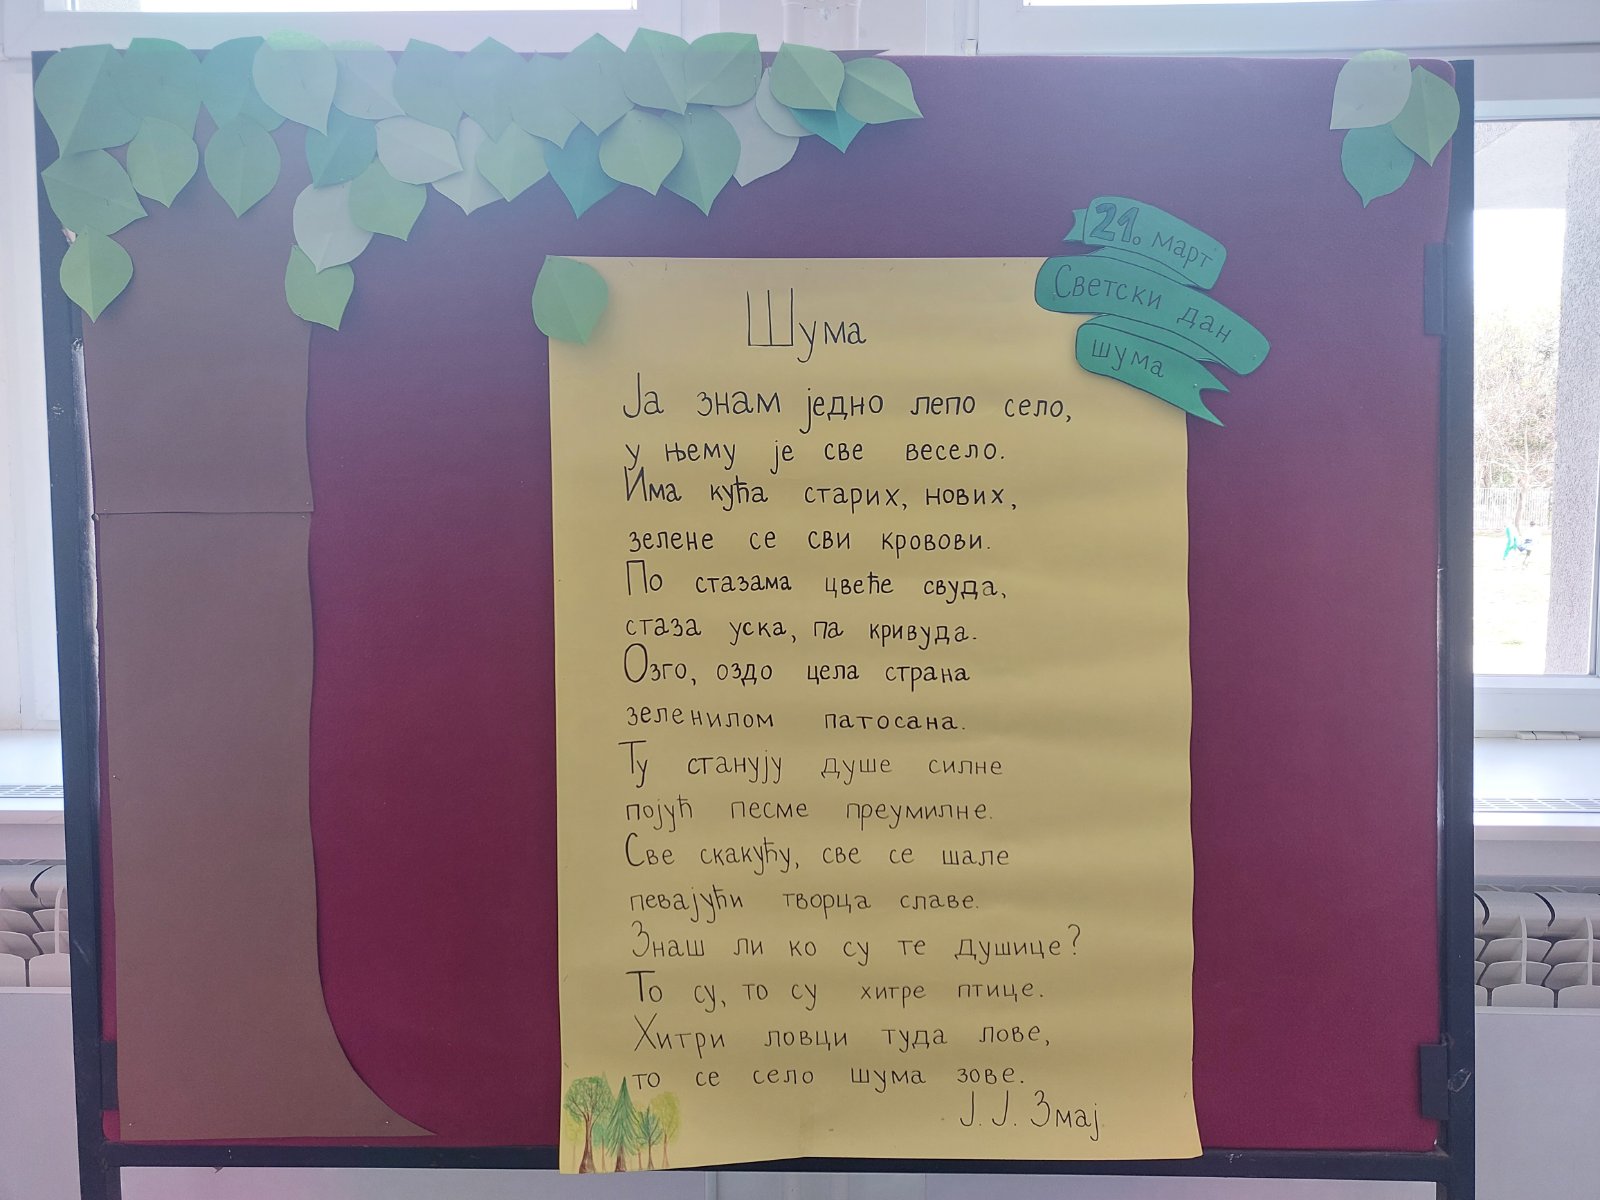 21. март
Светски дан
шума
Шума
Ја знам једно лепо село,
у њему је све весело.
Има кућа старих, нових,
зелене се сви кровови.
По стазама цвеће свуда,
стаза уска, па кривуда.
Озго, оздо цела страна
зеленилом патосана.
Ту станују душе силне
појућ песме преумилне.
Све скакућу, све се шале
певајући творца славе.
Знаш ли ко су те душице?
То су, то су хитре птице.
Хитри ловци туда лове,
то се село шума зове.
Ј. Ј. Змај